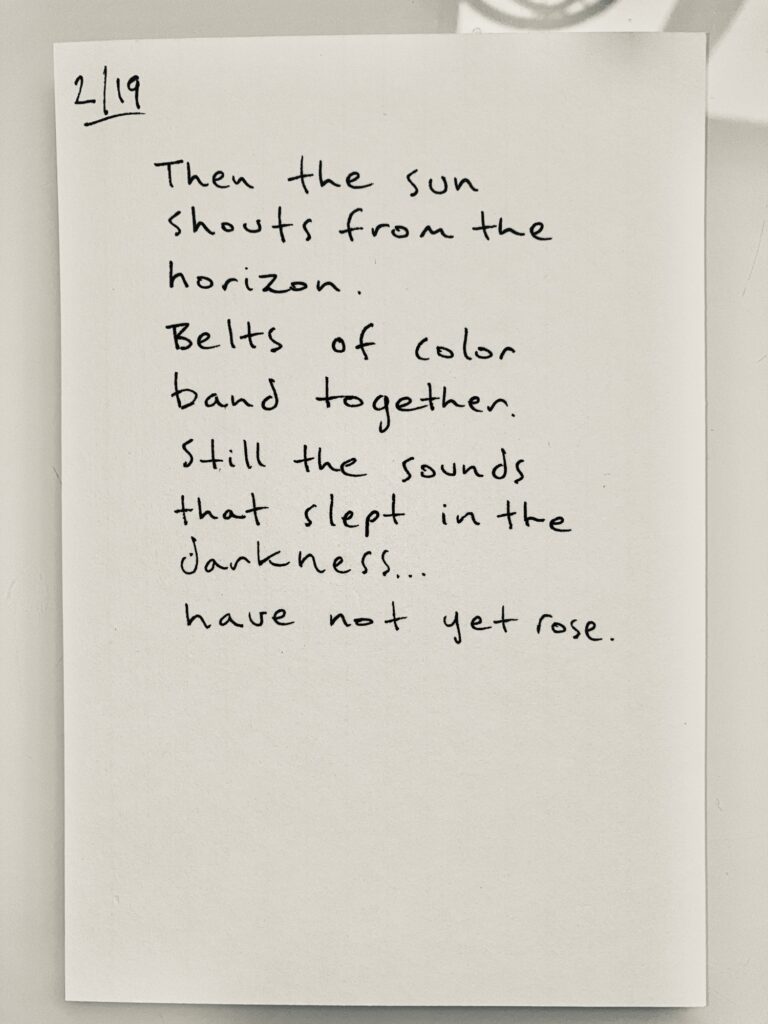 2/19
Then the sun
shouts from the
horizon.
Belts of color
band together.
Still the sounds
that slept in the
darkness...
have not yet rose.